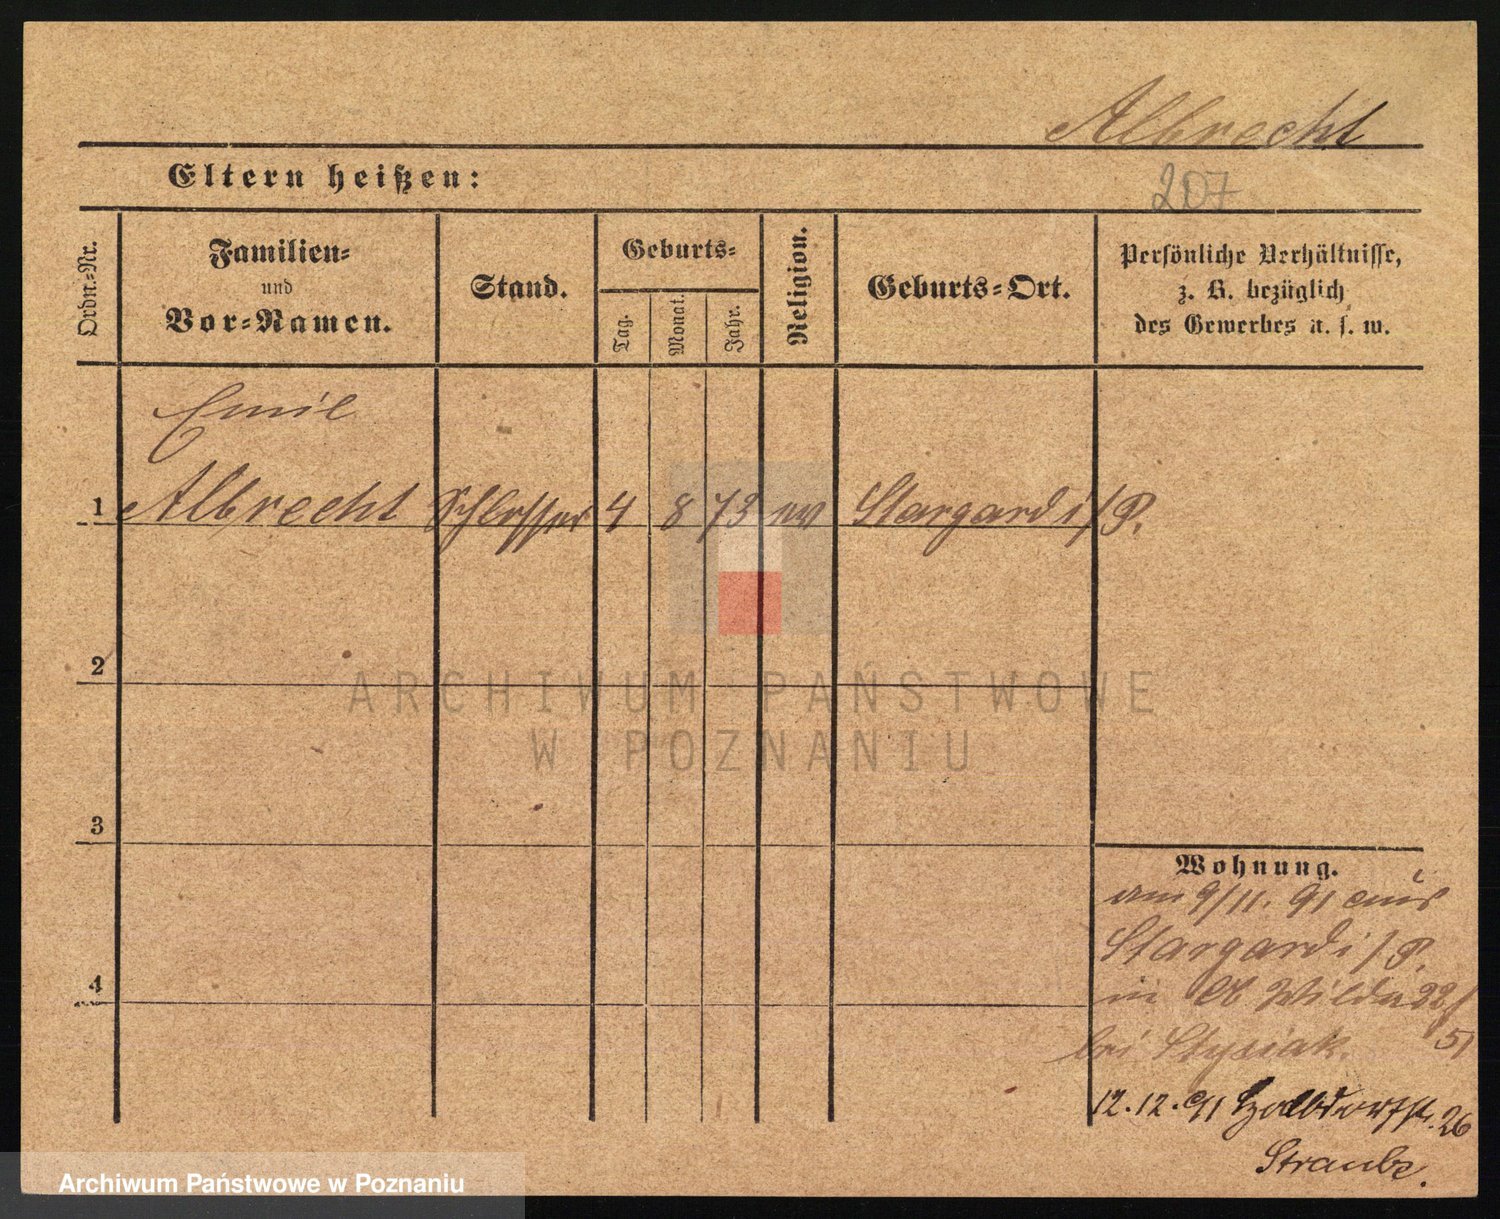 Albrecht
Eltern heißen:
207
Ordn.-Nr.
Familien-
und
Vor-Namen.
Stand.
Geburts-
Tag.
Monat.
Jahr.
Religion.
Geburts-Ort.
Persönliche Verhältnisse,
z. B. bezüglich
des Gewerbes u. s. w.
Emil
1 Albrecht Schlosser 4 8 73 ev Stargard i/P.
2
ARCHIWUM PAŃSTWOWE
W POZNANIU
3
Wohnung.
am 9/11. 91 aus
Stargard i/P.
4
in Wilda 22/
51
bei Stysiak.
12.12.91 26
Straube.
Archiwum Państwowe w Poznaniu